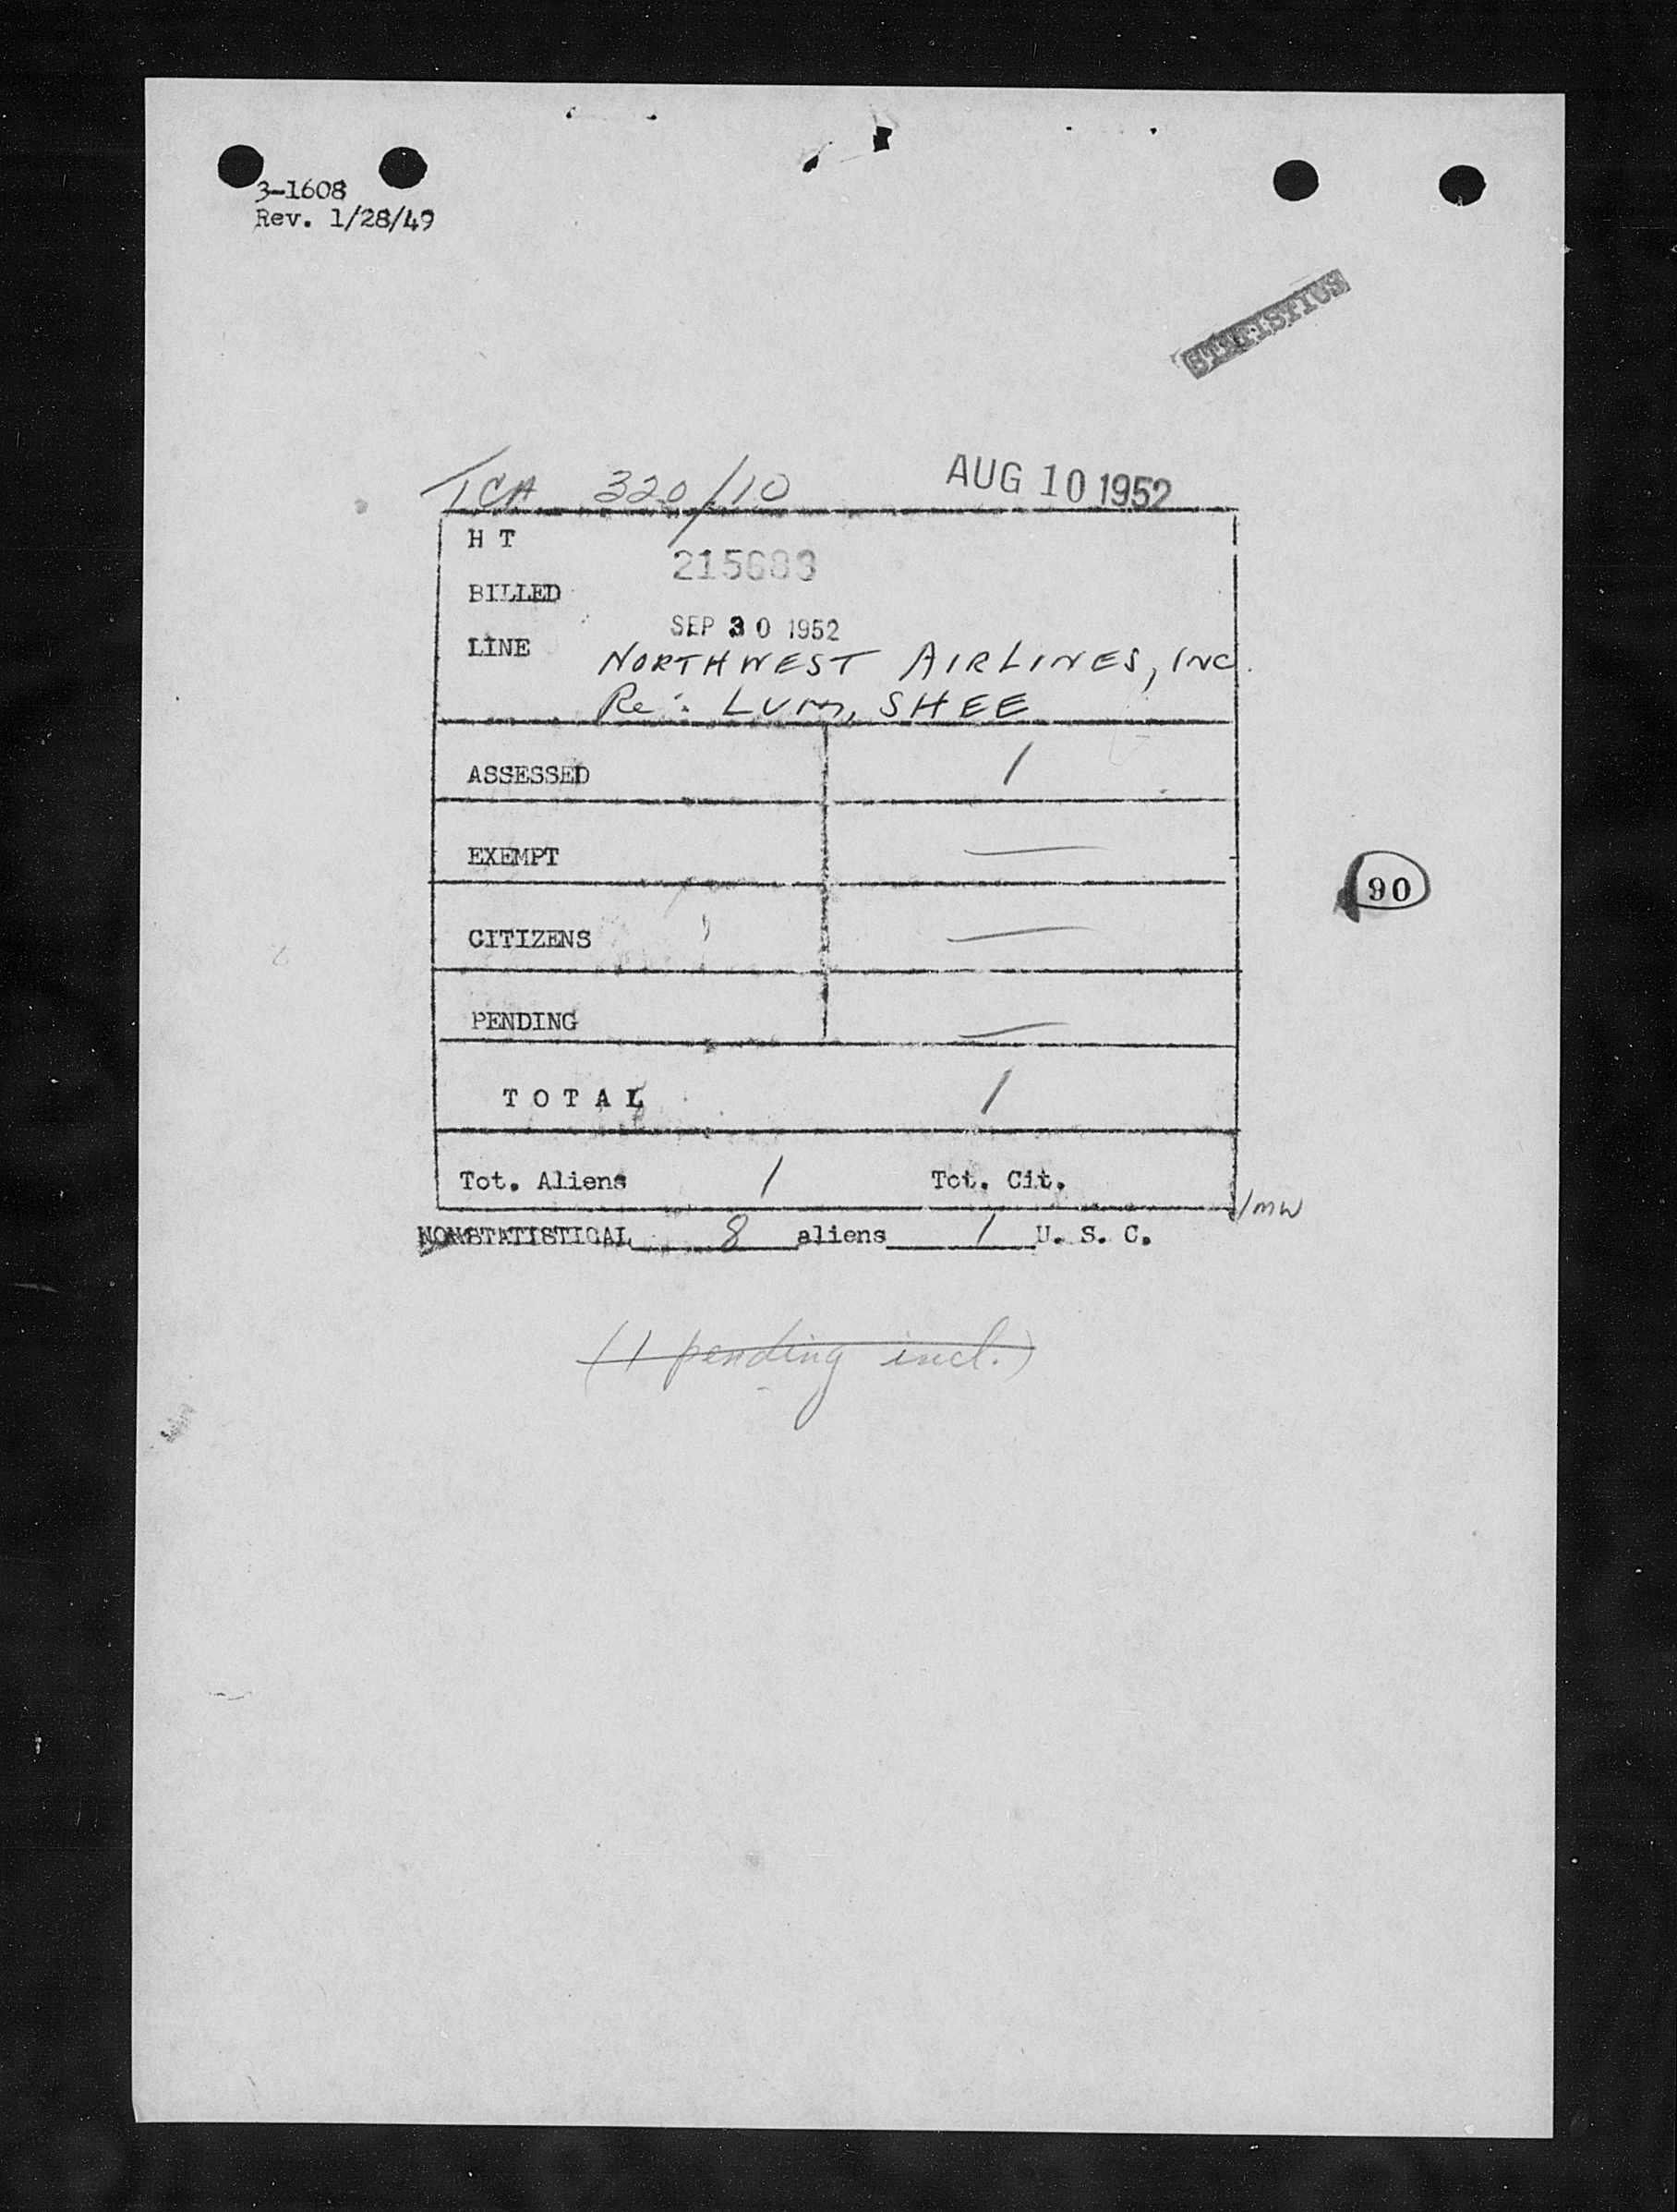 3-1608
Rev. 1/28/49
STATISTICS
TCA 320/10 AUG 10 1952
H T
BILLED
SEP 30 1952
LINE NORTHWEST AIRLINES, INC.
Re: LUM, SHEE
ASSESSED 1
EXEMPT —
CITIZENS —
90
PENDING —
TOTAL 1
Tot. Aliens 1 Tot. Cit.
/MW
NONSTATISTICAL 8 aliens 1 U. S. C.
(1 pending incl.)